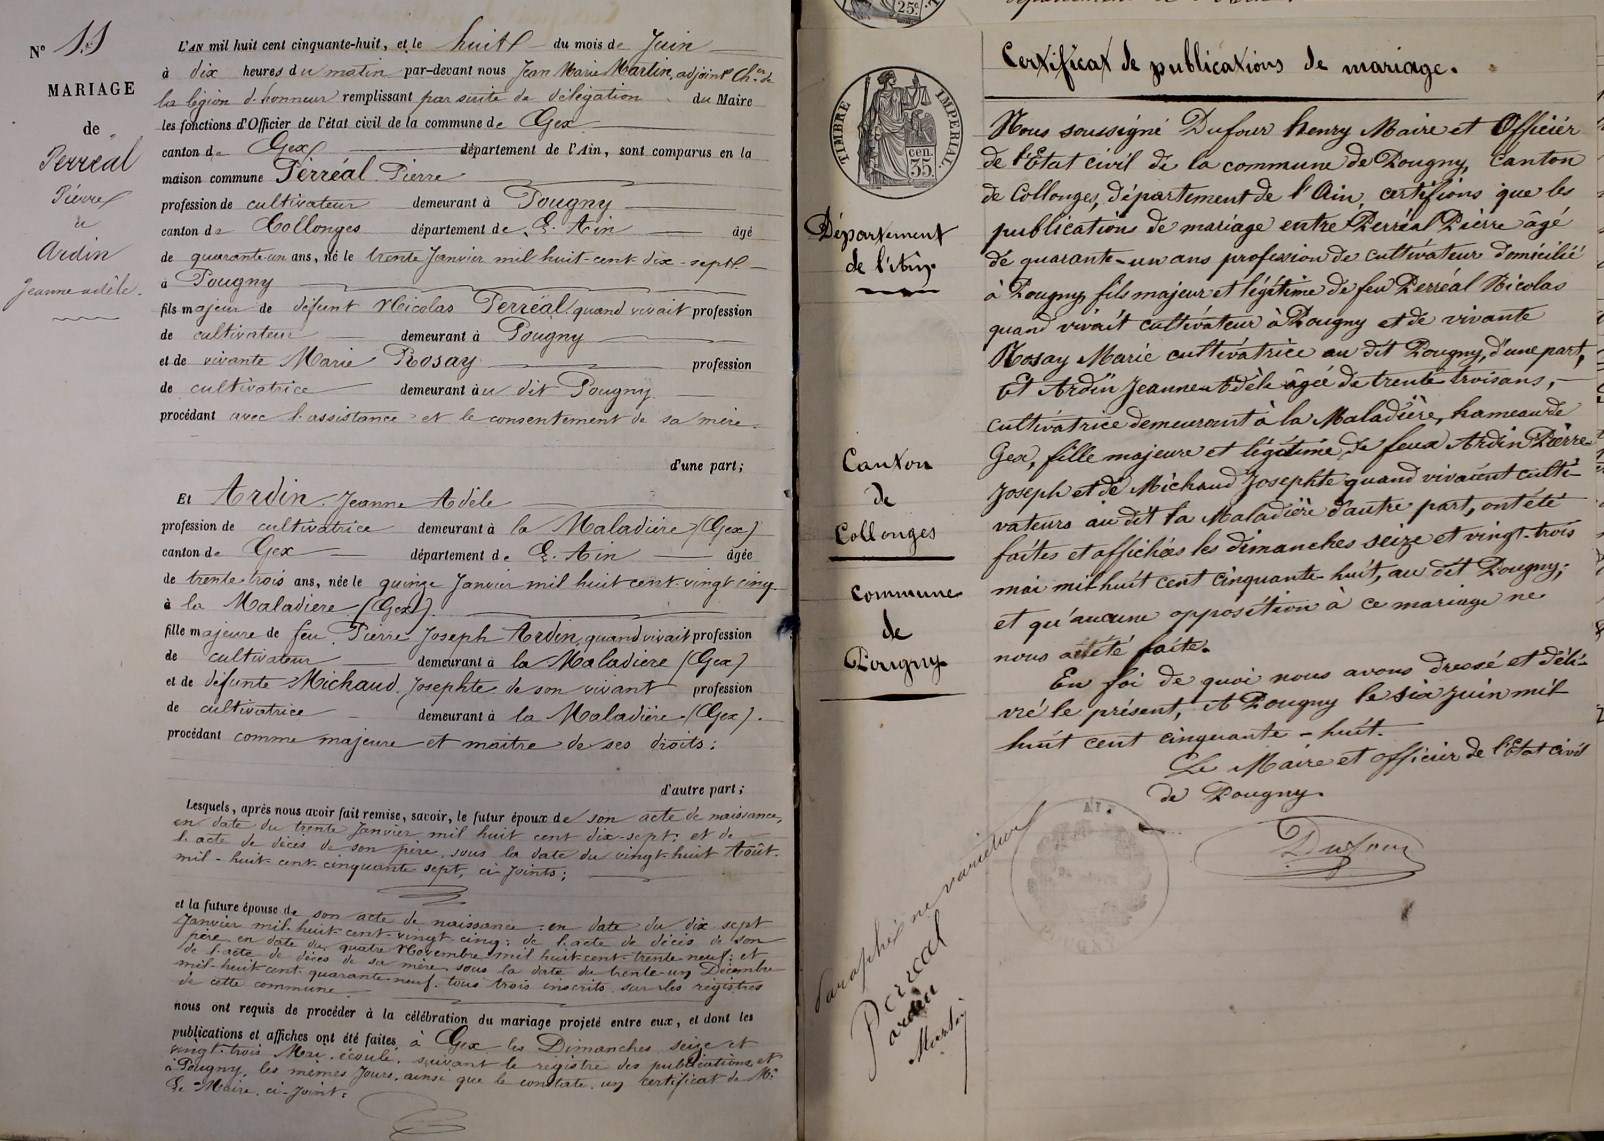 N° 11
MARIAGE
de
Perréal
Pierre
&
Ardin
Jeanne adèle.
L'AN mil huit cent cinquante-huit, et le huit du mois de Juin
à dix heures du matin par-devant nous Jean Marie Martin, adjoint Ch.er de
la légion d'honneur remplissant par suite de délégation du Maire
les fonctions d'Officier de l'état civil de la commune de Gex
canton de Gex département de l'Ain, sont comparus en la
maison commune Perréal Pierre
profession de cultivateur demeurant à Pougny
canton de Collonges département de L'Ain âgé
de quarante-un ans, né le trente Janvier mil huit-cent-dix-sept
à Pougny
fils majeur de défunt Nicolas Perréal quand vivait profession
de cultivateur demeurant à Pougny
et de vivante Marie Rosay profession
de cultivatrice demeurant au dit Pougny
procédant avec l'assistance et le consentement de sa mère.
d'une part;
Et Ardin Jeanne Adèle
profession de cultivatrice demeurant à la Maladière (Gex)
canton de Gex département de L'Ain âgée
de trente trois ans, née le quinze Janvier mil huit cent vingt cinq
à la Maladière (Gex)
fille majeure de feu Pierre Joseph Ardin, quand vivait profession
de cultivateur demeurant à la Maladière (Gex)
et de défunte Michaud Josephte de son vivant profession
de cultivatrice demeurant à la Maladière (Gex).
procédant comme majeure et maître de ses droits;
d'autre part;
Lesquels, après nous avoir fait remise, savoir, le futur époux de son acte de naissance,
en date du trente Janvier mil huit cent dix-sept; et de
l'acte de décès de son père, sous la date du vingt-huit Août
mil-huit-cent-cinquante sept, ci-joints;
et la future épouse de son acte de naissance; en date du dix sept
Janvier mil-huit-cent-vingt cinq; de l'acte de décès de son
père en date du quatre Novembre mil huit-cent-trente neuf; et
de l'acte de décès de sa mère, sous la date du trente-un Décembre
mil-huit-cent quarante-neuf, tous trois inscrits sur les registres
de cette commune
nous ont requis de procéder à la célébration du mariage projeté entre eux, et dont les
publications et affiches ont été faites à Gex les Dimanches seize et
vingt-trois Mai écoulé, suivant le registre des publications, et
à Pougny, les mêmes Jours, ainsi que le constate un certificat de Mr
Le Maire, ci-joint;
25c
TIMBRE IMPERIAL
cen.
35
Certificat de publications de mariage.
Département
de l'Ain
Canton
de
Collonges
Commune
de
Pougny
Nous soussigné Dufour henry Maire et Officier
de l'Etat civil de la commune de Pougny, canton
de Collonges, département de l'Ain, certifions que les
publications de mariage entre Perréal Pierre âgé
de quarante-un ans profession de cultivateur domicilié
à Pougny fils majeur et légitime de feu Perréal Nicolas
quand vivait cultivateur à Pougny et de vivante
Rosay Marie cultivatrice au dit Pougny, d'une part,
Et Ardin Jeanne Adèle âgée de trente trois ans,
cultivatrice demeurant à la Maladière, hameau de
Gex, fille majeure et légitime de feux Ardin Pierre
Joseph et de Michaud Josephte quand vivaient culti-
vateurs au dit la Maladière d'autre part, ont été
faites et affichées les dimanches seize et vingt-trois
mai mil huit cent cinquante-huit, au dit Pougny;
et qu'aucune opposition à ce mariage ne
nous a été faite.
En foi de quoi nous avons dressé et déli-
vré le présent, à Pougny le six juin mil
huit cent cinquante-huit.
Le Maire et officier de l'Etat civil
de Pougny.
Dufour
Paraphé ne varietur
Perreal
ardin
Martin
POUGNY